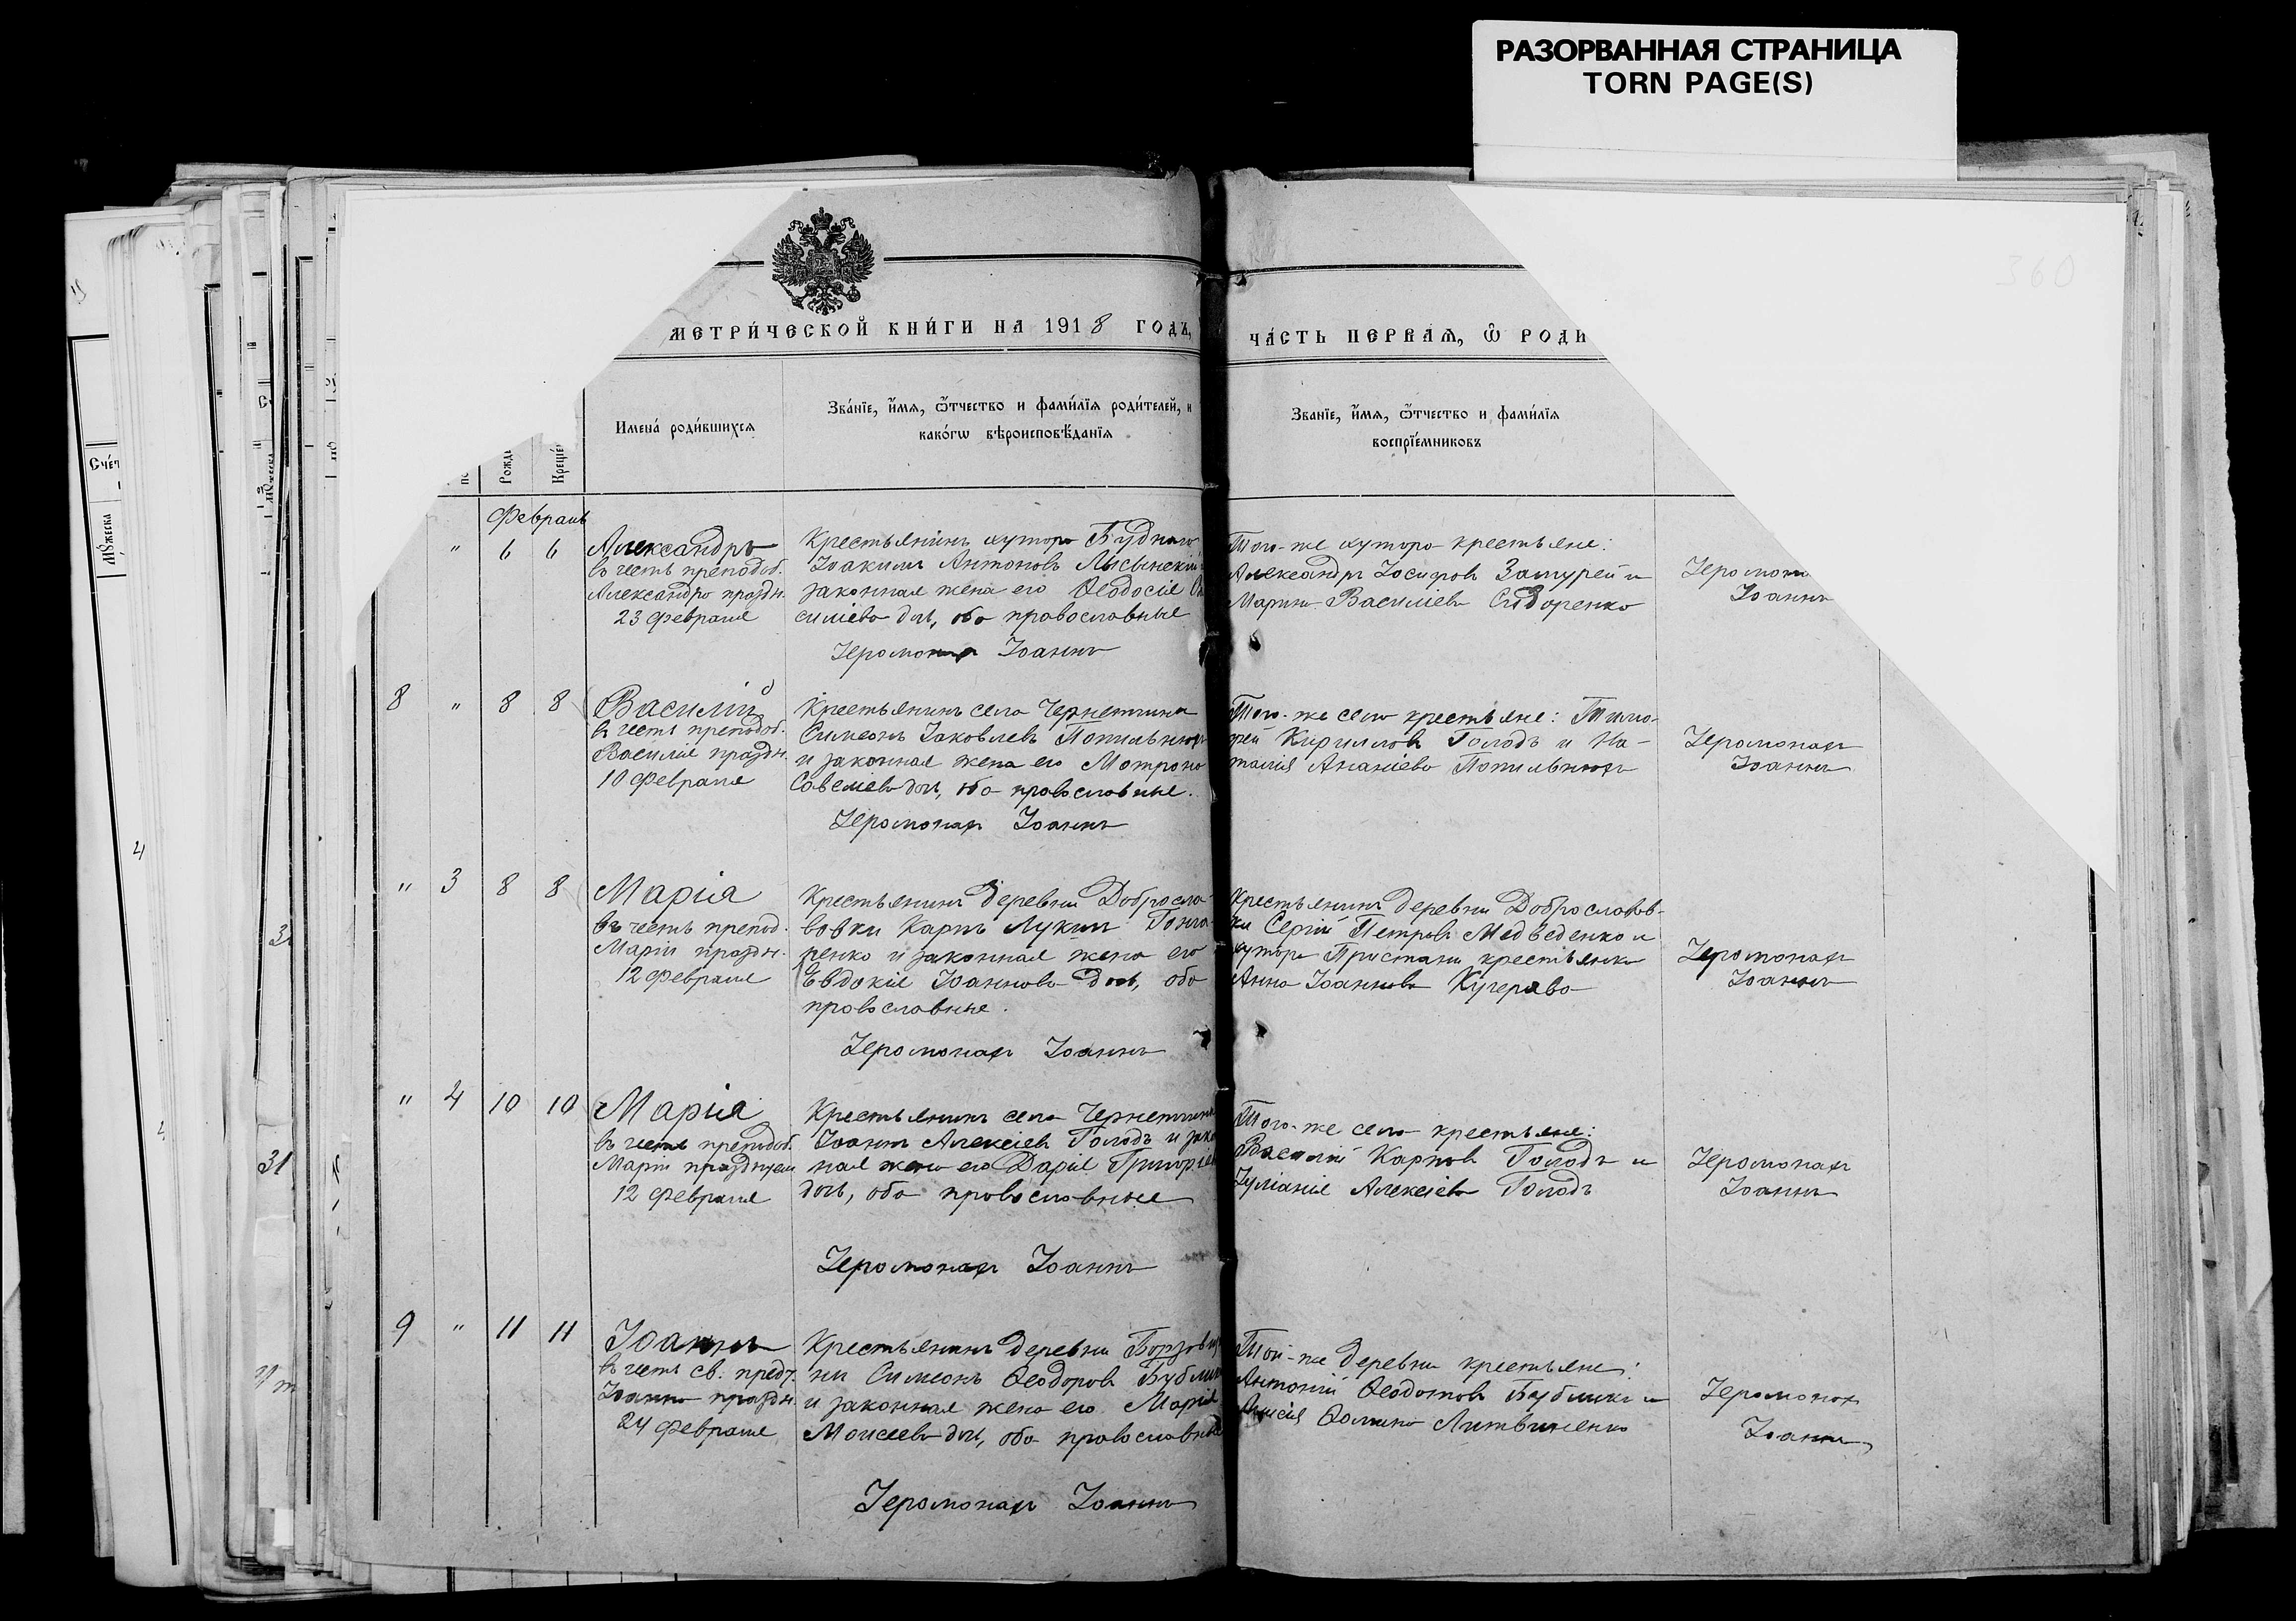 РАЗОРВАННАЯ СТРАНИЦА
TORN PAGE(S)
360
МЕТРИ́ЧЕСКОЙ КНИ́ГИ НА 1918 ГОДЪ,
ЧА́СТЬ ПЕРВАѦ, Ѡ҆ РОДИ
Счет
Мꙋжеска
Рожд
Креще
Имена́ роди́вшихсѧ
Зва́нїе, и҆́мѧ, ѻ҆́тчество и фами́лїѧ роди́телей, и
како́гѡ вѣроисповѣ́данїѧ
Зва́нїе, и҆́мѧ, ѻ҆́тчество и фами́лїѧ
воспрїе́мниковъ
Февраль
" 6 6
Александръ
въ честь преподоб.
Александра праздн.
23 февраля
Крестьянинъ хутора Буднаго
Іоакимъ Антоновъ
законная жена его Ѳеодосія
силіева доч., оба православные
Іеромонахъ Іоаннъ
Того-же хутора крестьяне:
Александръ Іосифовъ Замурей и
Марина Василіева Сидоренко
Іеромона
Іоаннъ
8 " 8 8
Василій
въ честь преподоб.
Василія праздн.
10 февраля
Крестьянинъ села Чернетчина
Симеонъ Іаковлевъ Попильнюхъ
и законная жена его Матрона
Савеліева доч., оба православные.
Іеромонахъ Іоаннъ
Того-же села крестьяне: Тимо-
фей Кирилловъ Голодъ и На-
талія Ананіева Попильнюхъ
Іеромонахъ
Іоаннъ
" 3 8 8
Марія
въ честь препод.
Маріи праздн.
12 февраля
Крестьянинъ деревни Добросла-
вовки Карпъ Лукинъ Гонча-
ренко и законная жена его
Евдокія Іоаннова доч., оба
православные.
Іеромонахъ Іоаннъ
Крестьянинъ деревни Доброславов-
ки Сергій Петровъ Медведенко и
хутора Пристани крестьянка
Анна Іоаннова Кучерява
Іеромонахъ
Іоаннъ
" 4 10 10
Марія
въ честь преподоб.
Маріи празднуем
12 февраля
Крестьянинъ села Чернетчина
Іоаннъ Алексіевъ Голодъ и зако
ная жена его Дарія Григоріев
доч., оба православные
Іеромонахъ Іоаннъ
Того-же села крестьяне:
Василій Карповъ Голодъ и
Іуліанія Алексіева Голодъ
Іеромонахъ
Іоаннъ
9 " 11 11
Іоаннъ
въ честь св. предт.
Іоанна праздн.
24 февраля
Крестьянинъ деревни
ни Симеонъ Ѳеодоровъ Бублик
и законная жена его Марія
Моисеева доч., оба православные
Іеромонахъ Іоаннъ
Той-же деревни крестьяне:
Антоній Ѳеодотовъ Бубликъ и
Ѳомина Литвиненко
Іеромонах
Іоаннъ